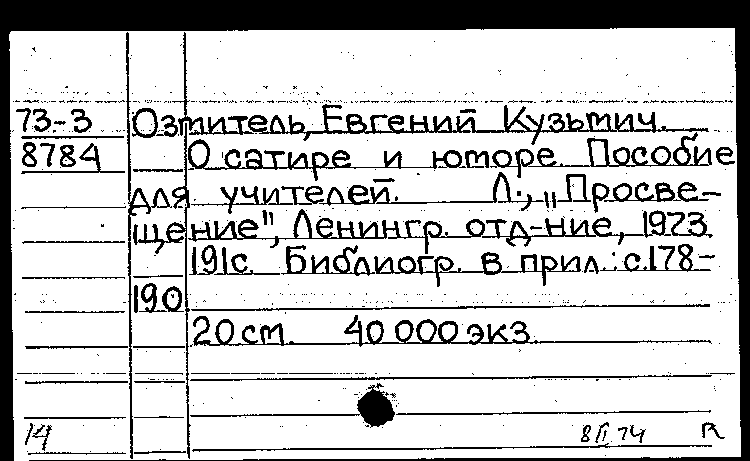 73-3 Озмитель, Евгений Кузьмич.
8784 О сатире и юморе. Пособие
для учителей. Л., „Просве-
щение", Ленингр. отд-ние, 1973.
191с. Библиогр. в прил.: с.178-
190
20 см. 40 000 экз.
14 8 II 74